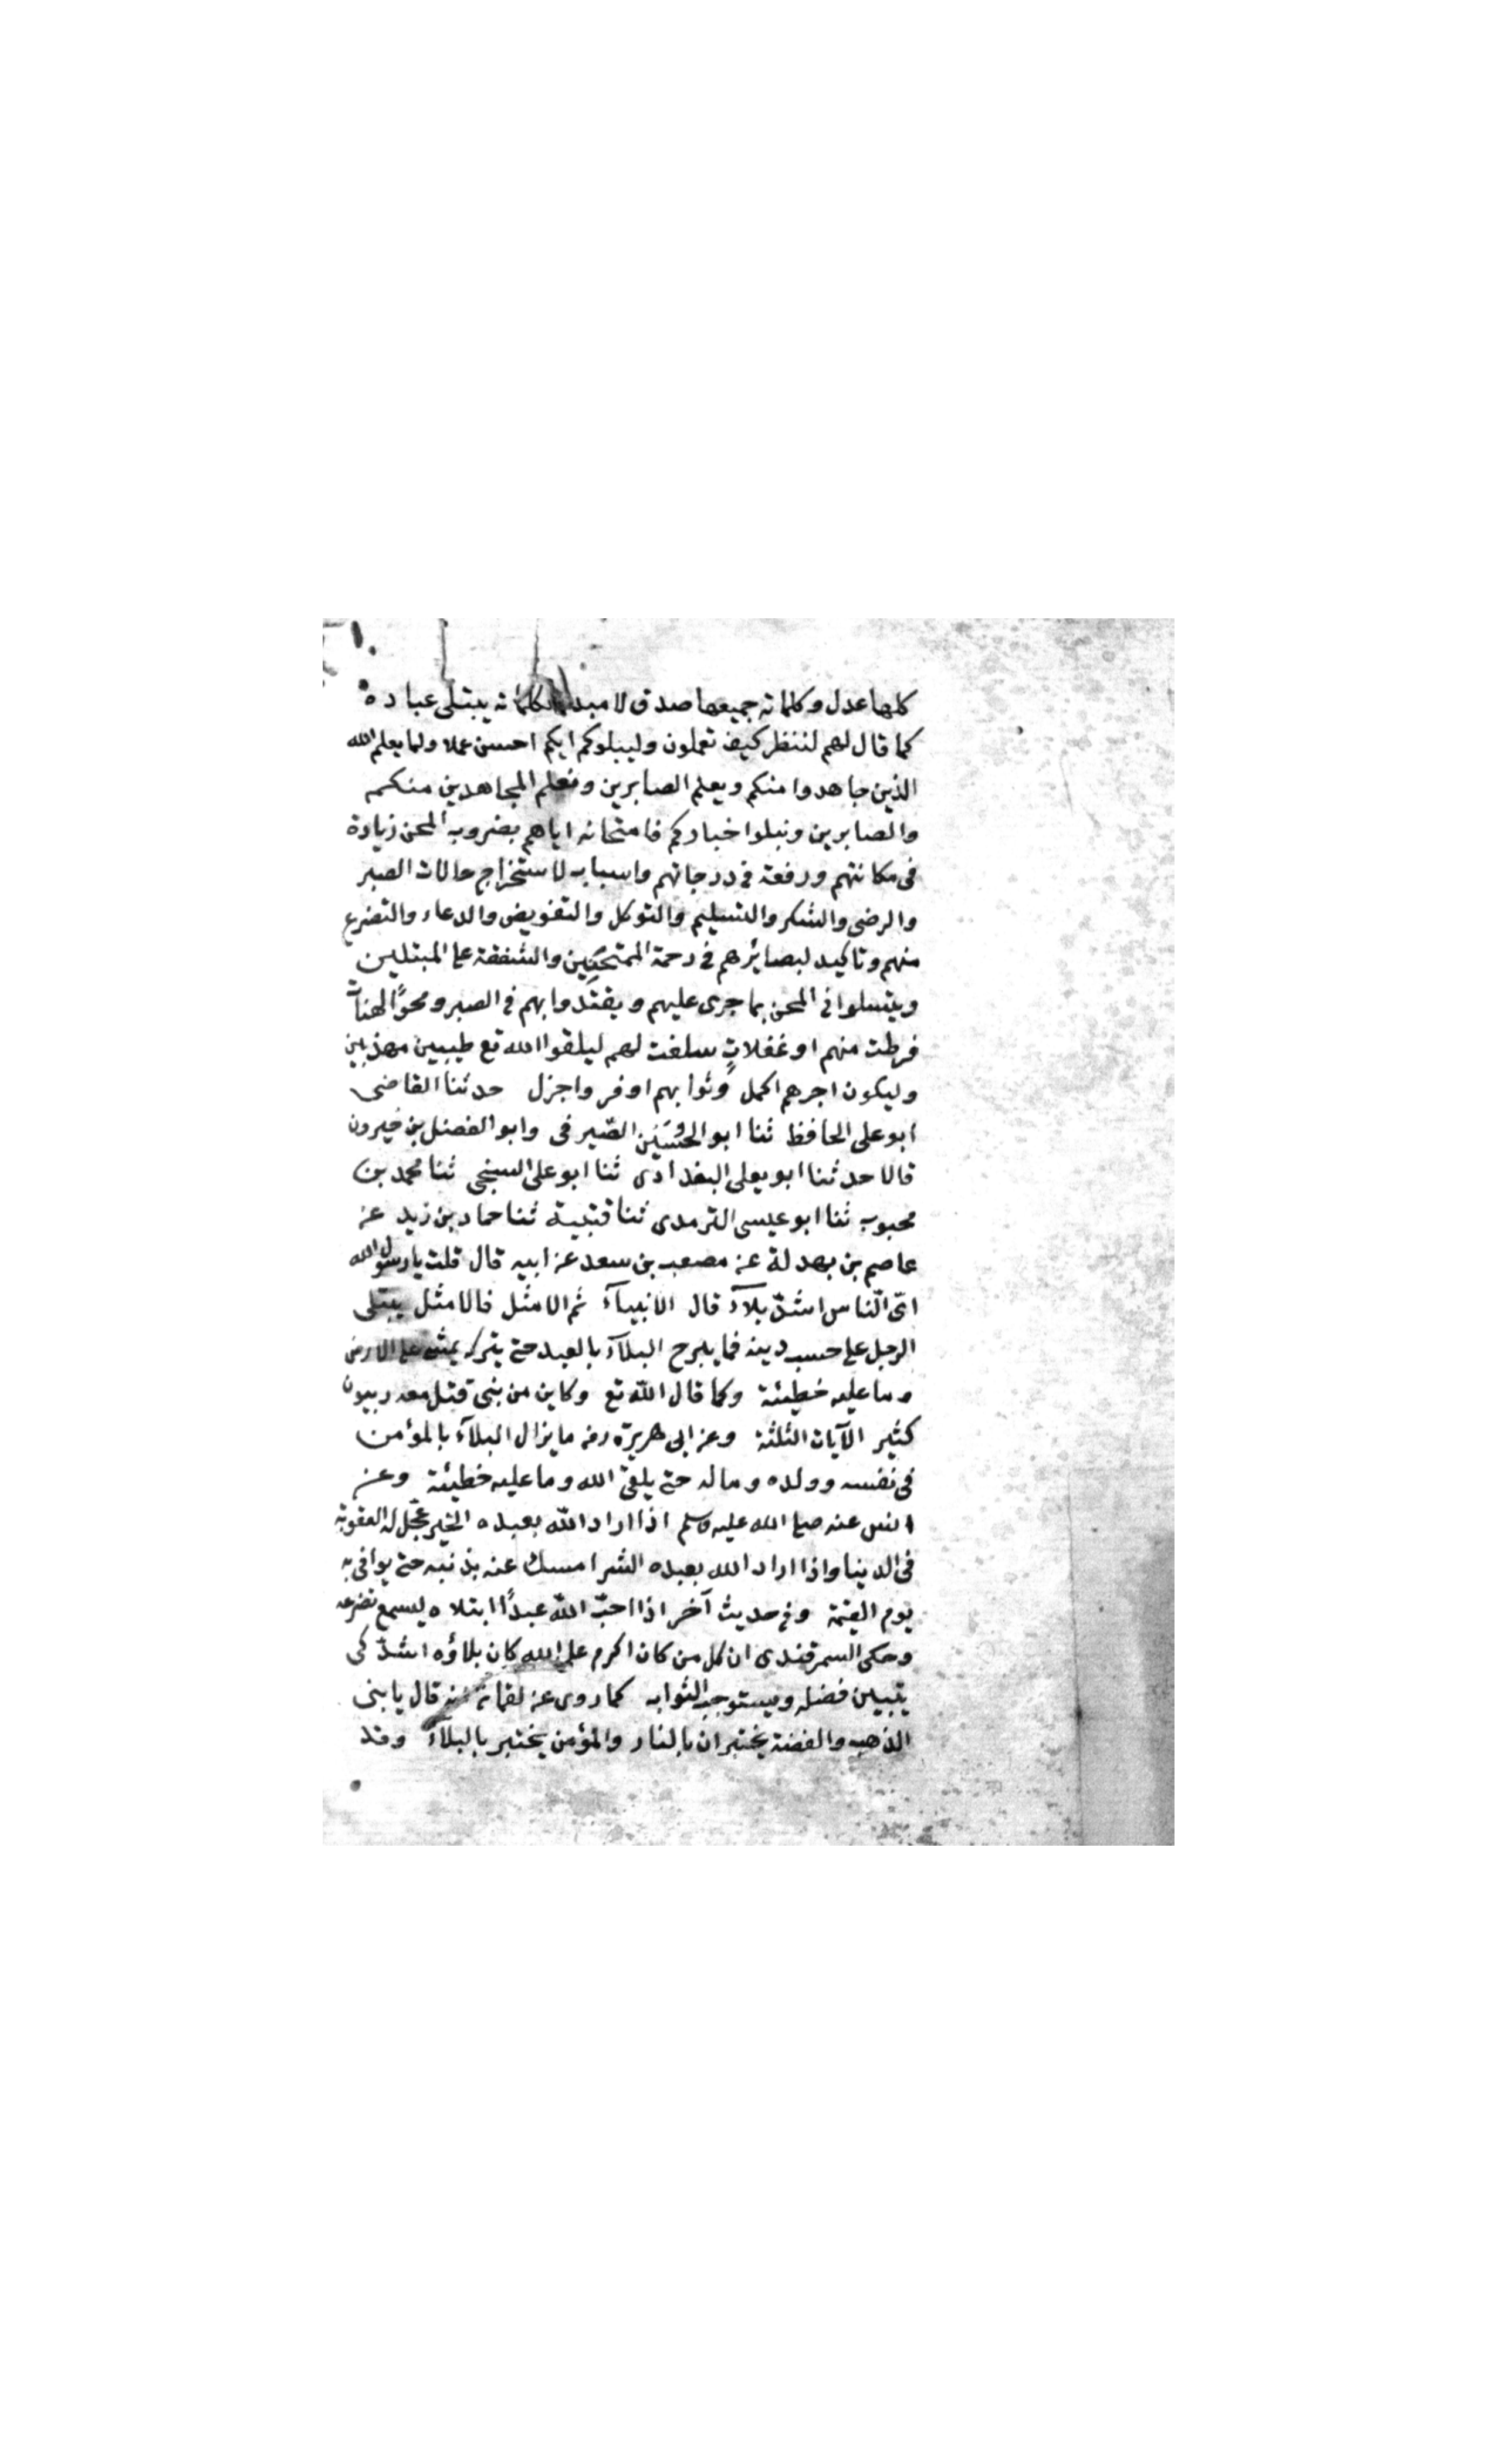 كلها عدل وكلماته جميعها صدق لا مبدل لكلماته يبتلى عباده
كما قال لهم لننظر كيف تعملون وليبلوكم ايكم احسن عملا ولما يعلم الله
الذين جاهدوا منكم ويعلم الصابرين ونعلم المجاهدين منكم
والصابرين ونبلوا خباركم فامتحانه اياهم بضروب المحن زيادة
فى مكانتهم ورفعة فى درجاتهم واسباب لاستخراج حالات الصبر
والرضى والشكر والتسليم والتوكل والتفويض والدعاء والتضرع
منهم وتاكيد لبصائرهم فى رحمة الممتحنين والشفقة على المبتلين
ويتسلوا فى المحن بما جرى عليهم ويقتدوا بهم فى الصبر ومحوًا لهنات
فرطت منهم او غفلاتٍ سلفت لهم ليلقوا الله تع طيبين مهذبين
وليكون اجرهم اكمل وثوابهم اوفر واجزل حدثنا القاضى
ابو على الحافظ ثنا ابو الحسين الصّيرفى وابو الفضل بن خيرون
قالا حدثنا ابو يعلى البغدادى ثنا ابو على السنجى ثنا محمد بن
محبوب ثنا ابو عيسى الترمدى ثنا قتيبة ثنا حماد بن زيد عن
عاصم بن بهدلة عن مصعب بن سعد عن ابيه قال قلت يا رسول الله
اىّ النّاس اشدّ بلآءً قال الانبيآء ثم الامثل فالامثل يبتلى
الرجل على حسب دينه فما يبرح البلآء بالعبد حتى يتركه يمشى على الارض
وما عليه خطيئة وكما قال اللّه تع وكاين من نبى قتل معه ربيون
كثير الآيات الثلثة وعن ابى هريرة رضه ما يزال البلآء بالمؤمن
فى نفسه وولده وماله حتى يلقى الله وما عليه خطيئة وعن
انس عنه صلى الله عليه وسلم اذا اراد اللّه بعبده الخير عجّل له العقوبة
فى الدينا واذا اراد الله بعبده الشر امسك عنه بذنبه حتى يوافى به
يوم القيمة وفى حديث آخر اذا احبّ اللّه عبدًا ابتلاه ليسمع تضرعه
وحكى السمرقندى ان كل من كان اكرم على الله كان بلاؤه اشدّ كى
يتبين فضله ويستوجب الثواب كما روى عن لقمان انه قال يا بنى
الذهب والفضة يختبران بالنار والمؤمن يختبر بالبلآء وقد